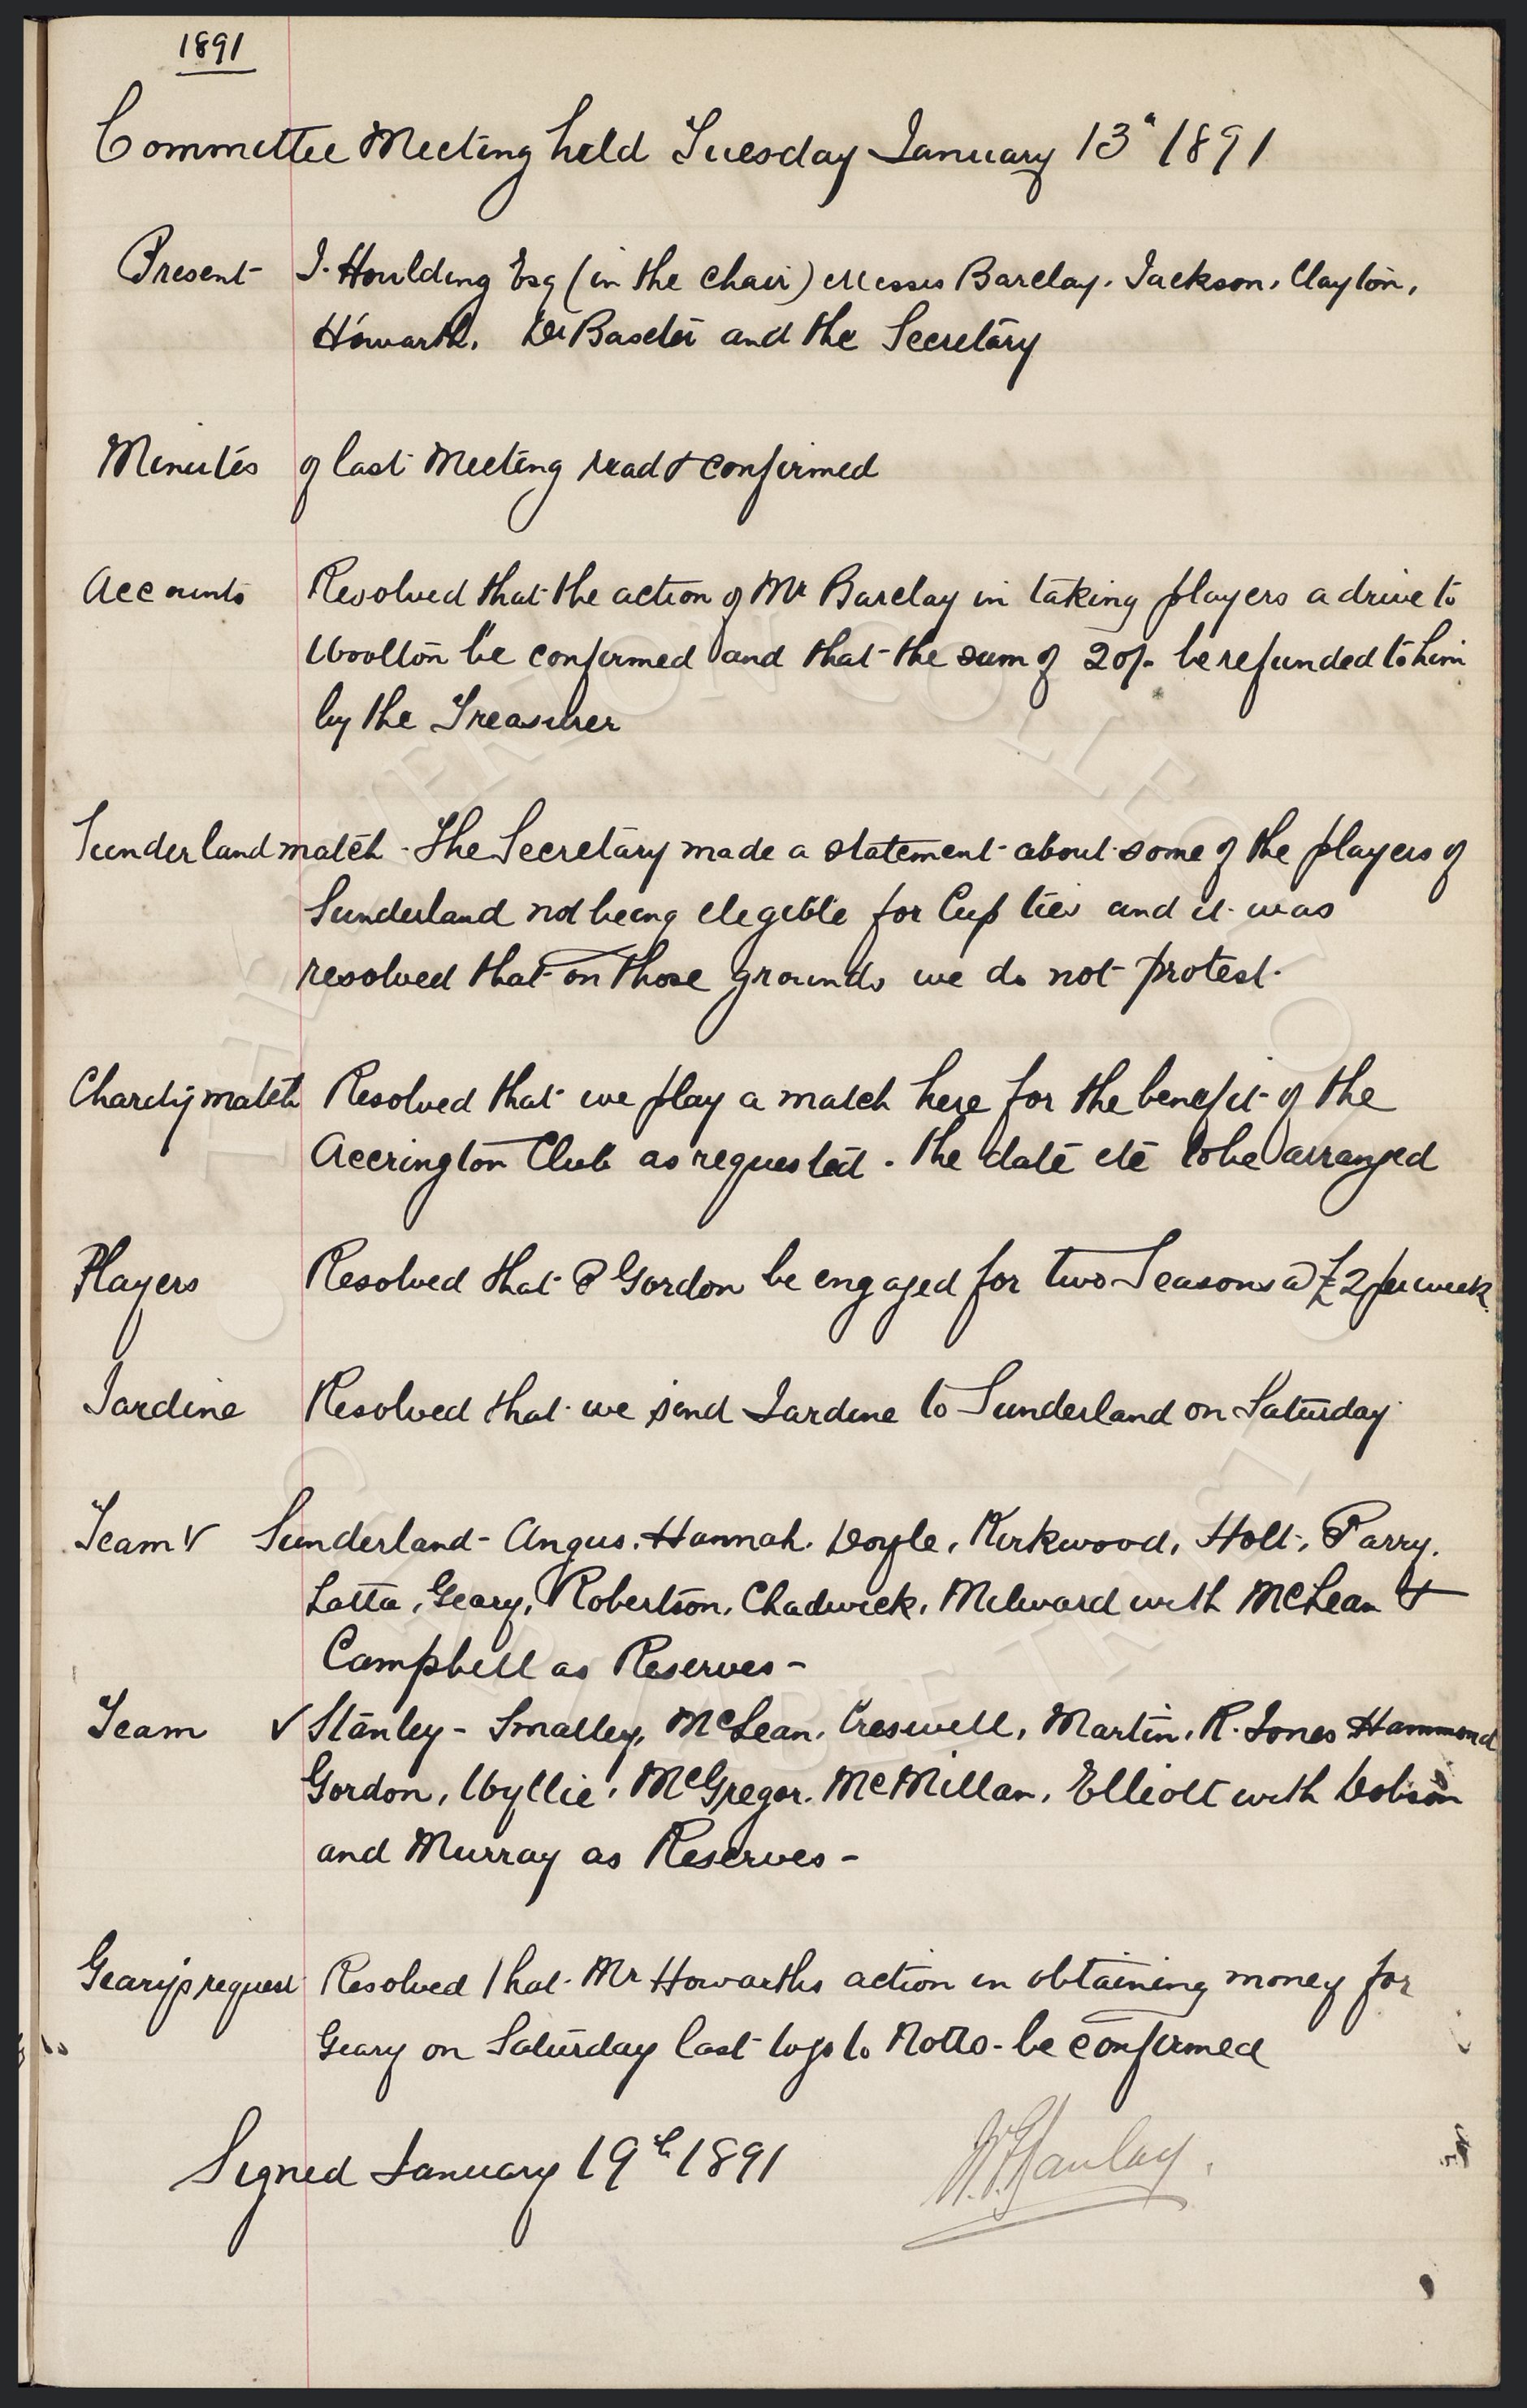 1891
Committee Meeting held Tuesday January 13th 1891
Present J. Houlding Esq (in the chair) Messrs Barclay. Jackson, Clayton,
Howarth, Dr Baxter and the Secretary
Minutes of last Meeting read & confirmed
Accounts Resolved that the action of Mr Barclay in taking players a drive to
Woolton be confirmed and that the sum of 20/- be refunded to him
by the Treasurer
Sunderland match - The Secretary made a statement about some of the players of
Sunderland not being elegible for Cup ties and it was
resolved that on those grounds we do not protest.
Charity match Resolved that we play a match here for the benefit of the
Accrington Club as requested. the date etc to be arranged
Players Resolved that P Gordon be engaged for two Seasons @ £2 per week.
Jardine Resolved that we send Jardine to Sunderland on Saturday
Team V Sunderland - Angus, Hannah, Doyle, Kirkwood, Holt, Parry,
Latta, Geary, Robertson, Chadwick, Milward with McLean &
Campbell as Reserves -
Team V Stanley - Smalley, McLean, Creswell, Martin, R. Jones Hammond
Gordon, Wyllie, McGregor. McMillan, Elliott with Dobson
and Murray as Reserves -
Geary's request Resolved that Mr Howarths action in obtaining money for
Geary on Saturday last to go to Notts - be confirmed
Signed January 19th 1891
THE EVERTON COLLECTION CHARITABLE TRUST